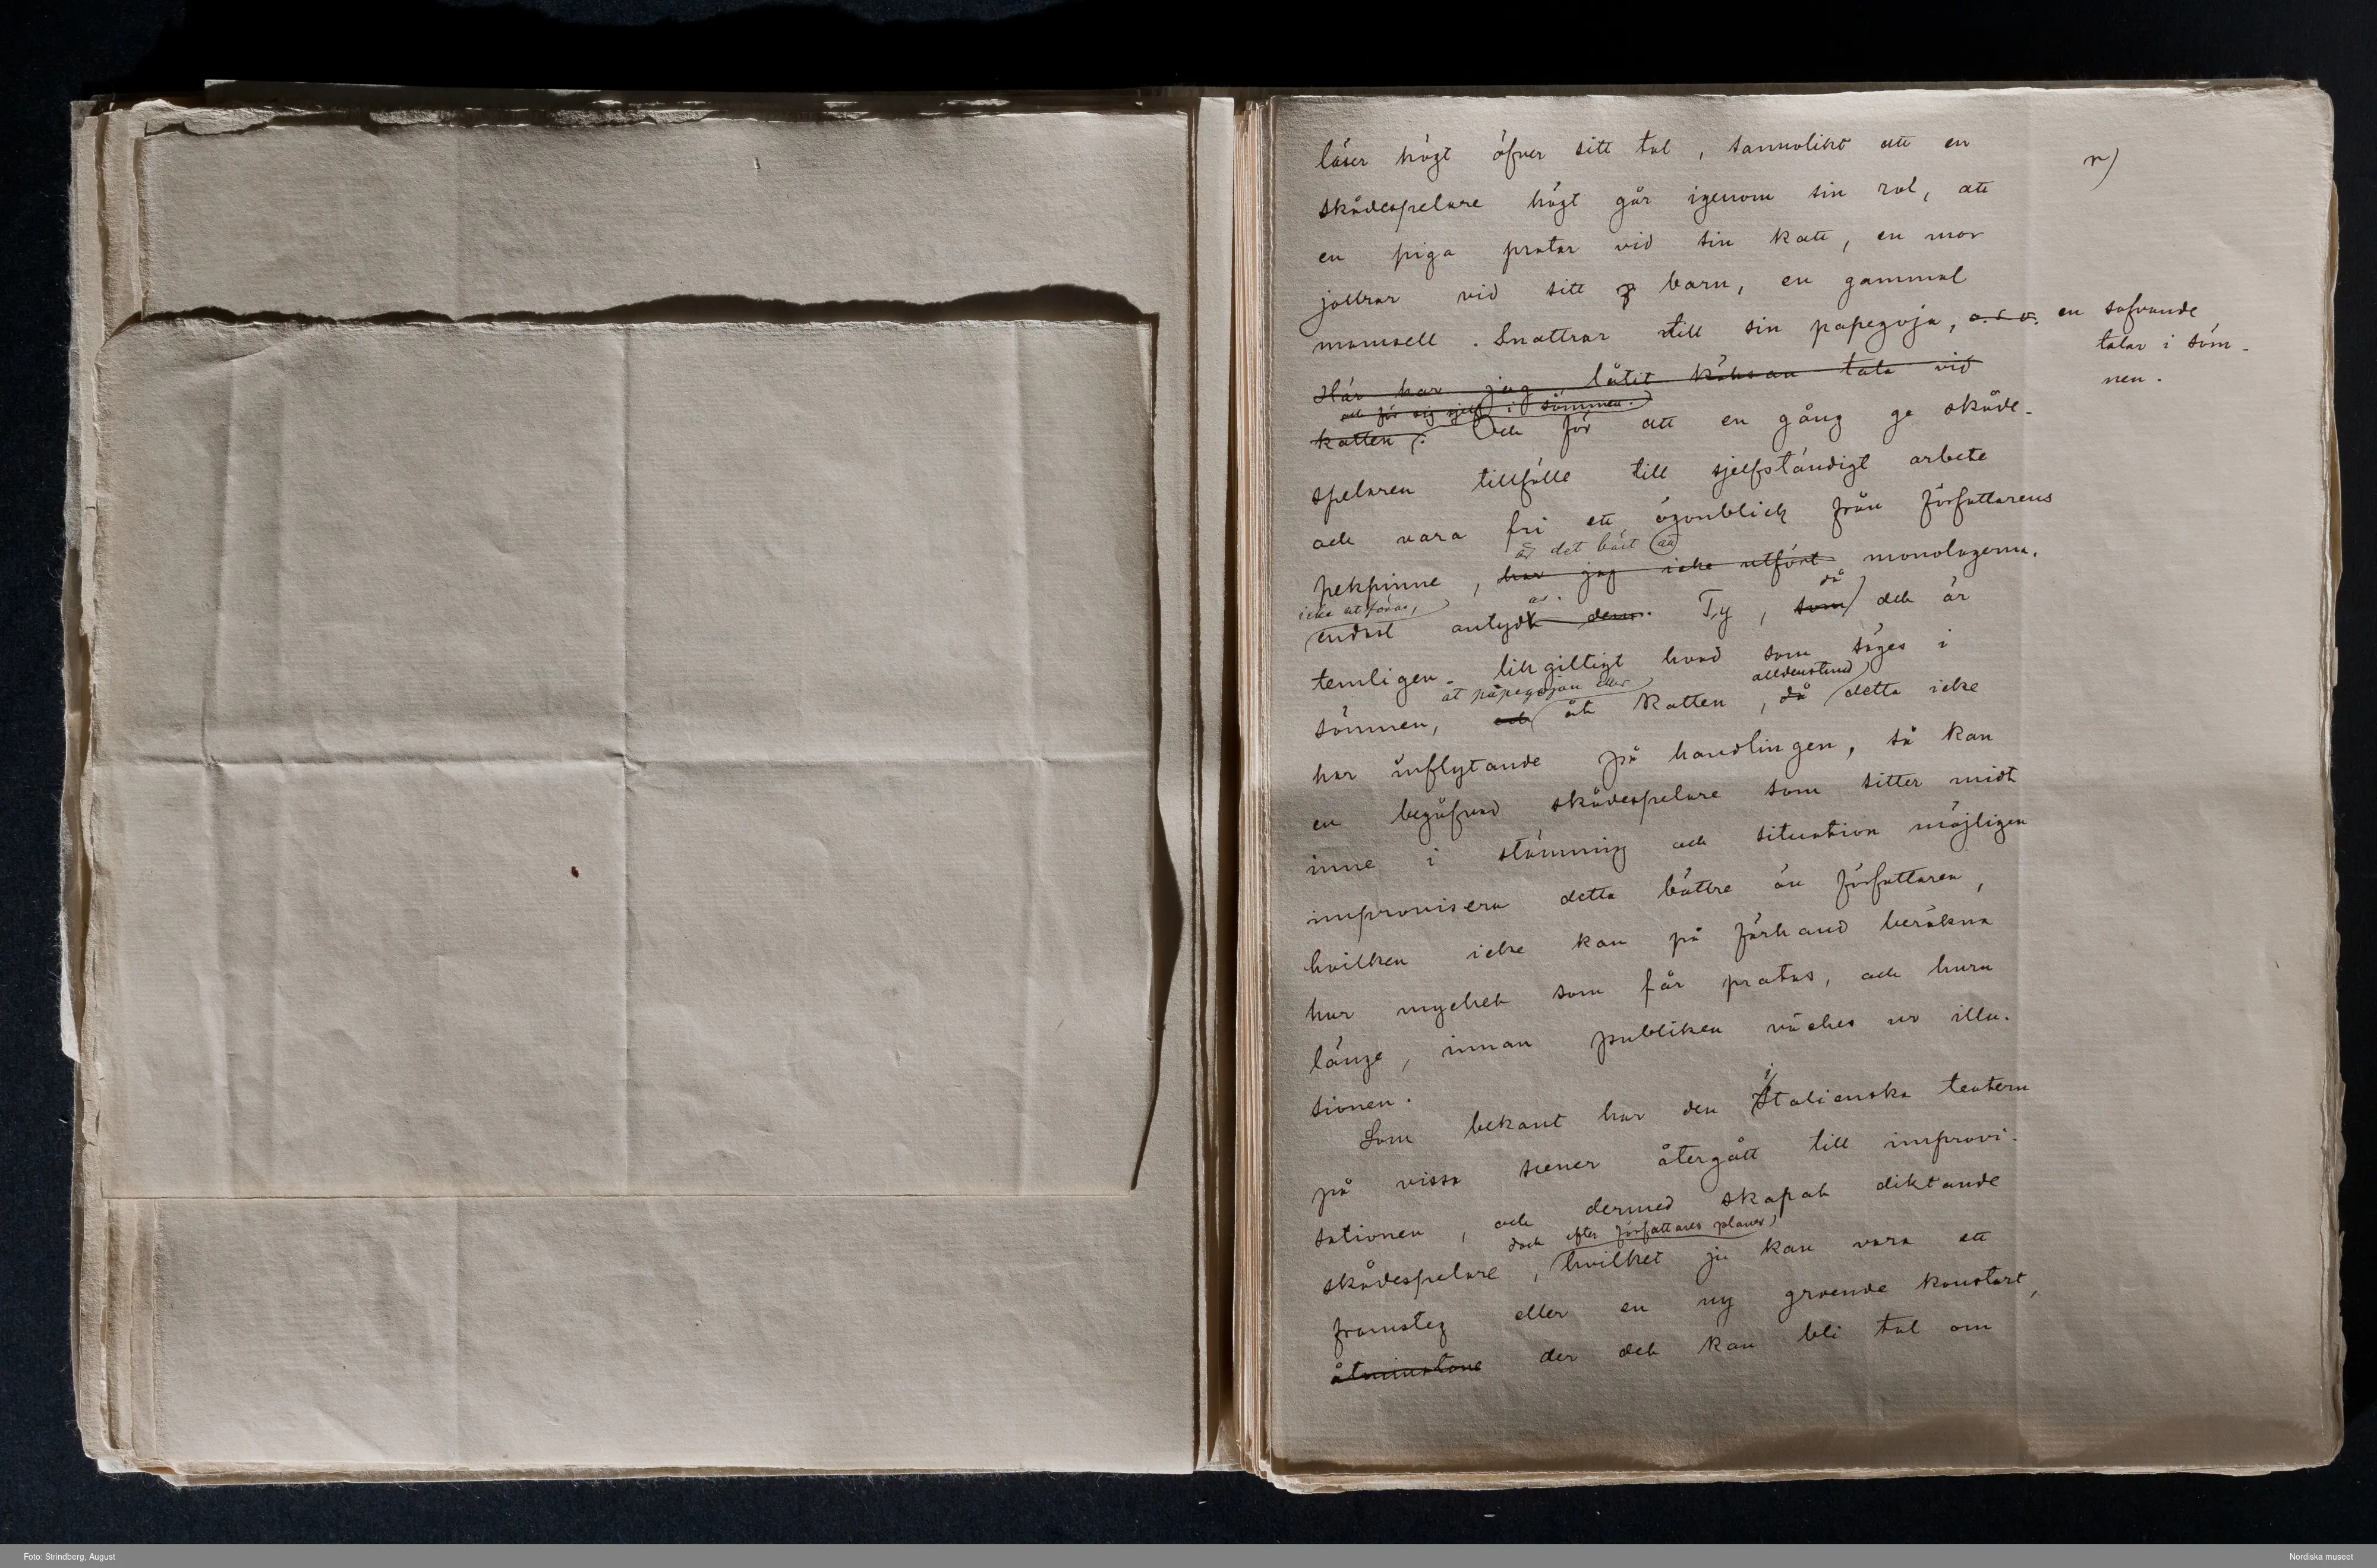 läser högt öfver sitt tal, sannolikt att en
r)
skådespelare högt går igenom sin rol, att
en piga pratar vid sin katt, en mor
jollrar vid sitt barn, en gammal
mamsell. Snattrar till sin papegoja, o. s. v. en sofvande
talar i söm-
nen.
Här har jag låtit köksan tala vid
och för sig sjelf i sömnen.
katten. Och för att en gång ge skåde-
spelaren tillfälle till sjelfständigt arbete
och vara fri ett ögonblick från författarens
är det bäst att
pekpinne, har jag icke utfört monologerna.
icke utföras, as. då
endast antydt dem. Ty, som det är
temligen likgiltigt hvad som säges i
åt papegojan eller alldenstund
sömnen, och åt katten, då detta icke
har inflytande på handlingen, så kan
en begåfvad skådespelare som sitter midt
inne i stämning och situation möjligen
improvisera detta bättre än författaren,
hvilken icke kan på förhand beräkna
hur mycket som får pratas, och huru
länge, innan publiken väckes ur illu-
sionen.
Som bekant har den italienska teatern
på vissa scener återgått till improvi-
sationen, och dermed skapat diktande
dock efter författares planer,
skådespelare, hvilket ju kan vara ett
framsteg eller en ny groende konstart,
åtminstone der det kan bli tal om
Foto: Strindberg, August
Nordiska museet